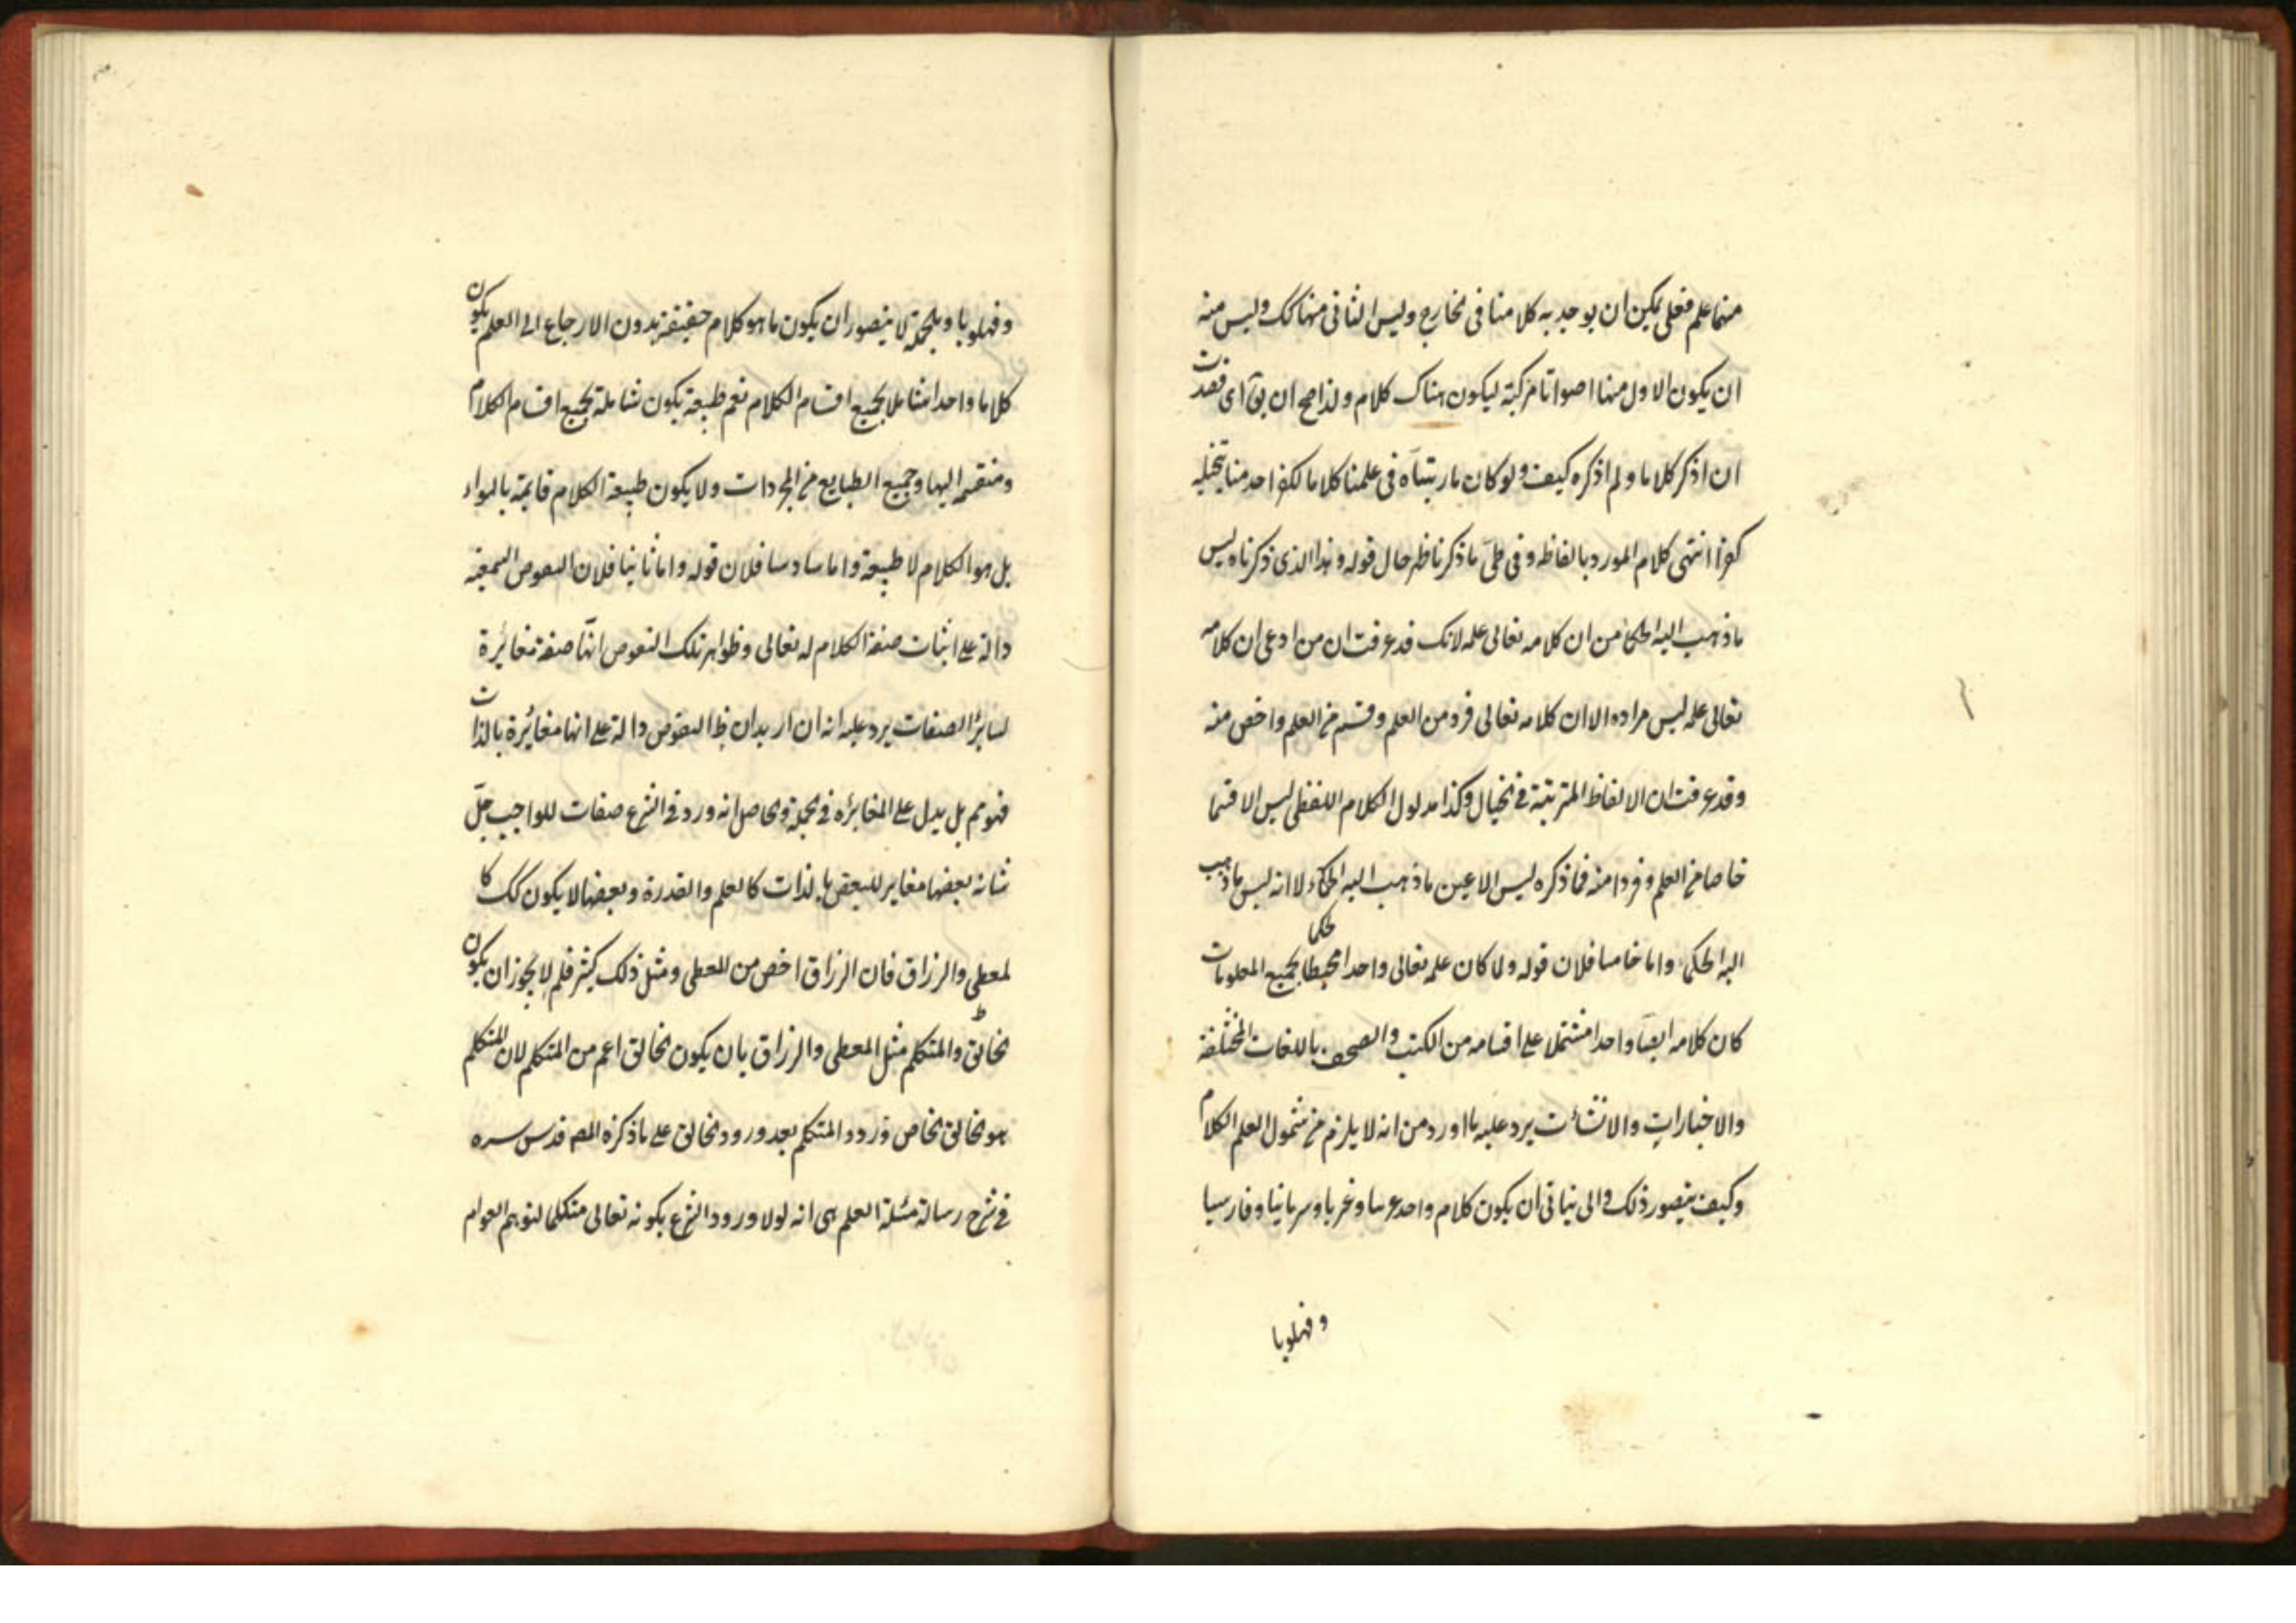 منها علم فعلى يمكن ان يوجد به كلامنا فى الخارج وليس الثانى منها كك وليس منه
ان يكون الاول منها اصواتا مركبة ليكون هناك كلام ولذا صح ان يق اى قصدت
ان اذكر كلاما ولم اذكره كيف ولو كان ما رتبناه فى علمنا كلاما لكفر احد منا بتخيله
كفرا انتهى كلام المورد بالفاظه وفى طىّ ما ذكرنا ظهر حال قوله وهذا الذى ذكرناه ليس
ما ذهب اليه الحكما من ان كلامه تعالى علمه لانك قد عرفت ان من ادعى ان كلامه
تعالى علمه ليس مراده الا ان كلامه تعالى فرد من العلم وقسم من العلم واخص منه
وقد عرفت ان الالفاظ المترتبة فى الخيال وكذا مدلول الكلام اللفظى ليس الا قسما
خاصا من العلم وفردا منه فما ذكره ليس الا عين ما ذهب اليه الحكماء لا انه ليس ما ذهب
اليه الحكما واما خامسا فلان قوله ولما كان علمه تعالى واحدا محيطا بجميع المعلومات
كان كلامه ايضا واحدا مشتملا على اقسامه من الكتب والصحف باللغات المختلفة
والاخبارات والانشائت يرد عليه ما اورد من انه لا يلزم من شمول العلم الكلام
وكيف يتصور ذلك والى يتاتى ان يكون كلام واحد عربيا وعبريا وسريانيا وفارسيا
وفهلويا
وفهلويا وبالجملة لا يتصور ان يكون ما هو كلام حقيقة بدون الارجاع الى العلم يكون
كلاما واحدا شاملا لجميع اقسام الكلام نعم طبيعة يكون شاملة لجميع اقسام الكلام
ومنقسمة اليها وجميع الطبايع من المجردات ولا يكون طبيعة الكلام قايمة بالهواء
بل هو الكلام لا طبيعة واما سادسا فلان قوله واما ثانيا فلان النصوص السمعية
دالة على اثبات صفة الكلام له تعالى وظواهر تلك النصوص انّها صفة مغائرة
لسائر الصفات يرد عليه انه ان اريد ان ظ النصوص دالة على انها مغائرة بالذات
فهو مم بل يدل على المغائره فى الجملة والحاصل انه ورد فى الشرع صفات للواجب جلّ
شانه بعضها مغاير للبعض بالذات كالعلم والقدرة وبعضها لا يكون كك كا
لمعطى والرزاق فان الرزاق اخص من المعطى ومثل ذلك كثير فلم لا يجوز ان يكون
الخالق والمتكلم مثل المعطى والرزاق بان يكون الخالق اعم من المتكلم لان المتكلم
هو الخالق الخاص وورد المتكلم بعد ورود الخالق على ما ذكره المص قدس سره
فى شرح رسالة مسئلة العلم هى انه لولا ورود الشرع بكونه تعالى متكلما لتوهم العوام